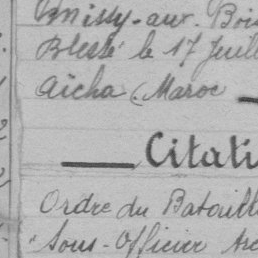 missy-aux-Bois
Blessé le 17 Juill
Aïcha (Maroc
Citati
Ordre du Bataill
"Sous-Officier